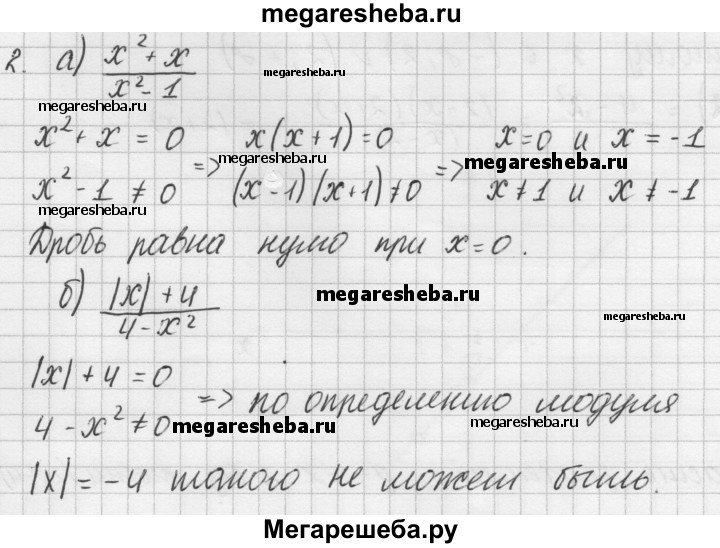 megaresheba.ru
2. а) (x² + x)/(x² - 1)
megaresheba.ru
megaresheba.ru
x² + x = 0 => x(x+1) = 0 => x = 0 и x = -1
megaresheba.ru
megaresheba.ru
x² - 1 ≠ 0 (x-1)(x+1) ≠ 0 x ≠ 1 и x ≠ -1
megaresheba.ru
Дробь равна нулю при x = 0.
б) (|x| + 4)/(4 - x²)
megaresheba.ru
megaresheba.ru
|x| + 4 = 0
4 - x² ≠ 0 => по определению модуля
megaresheba.ru
megaresheba.ru
|x| = -4 такого не может быть.
Мегарешеба.ру